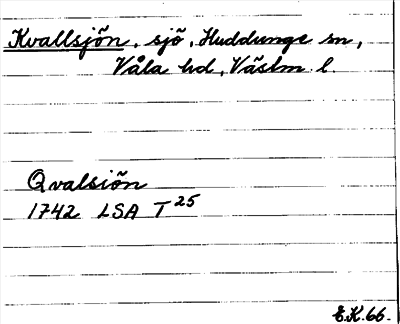 Kvallsjön, sjö, Huddunge sn,
Våla hd, Västm l.
Qvalsiön
1742 LSA T 25
E.K. 66.